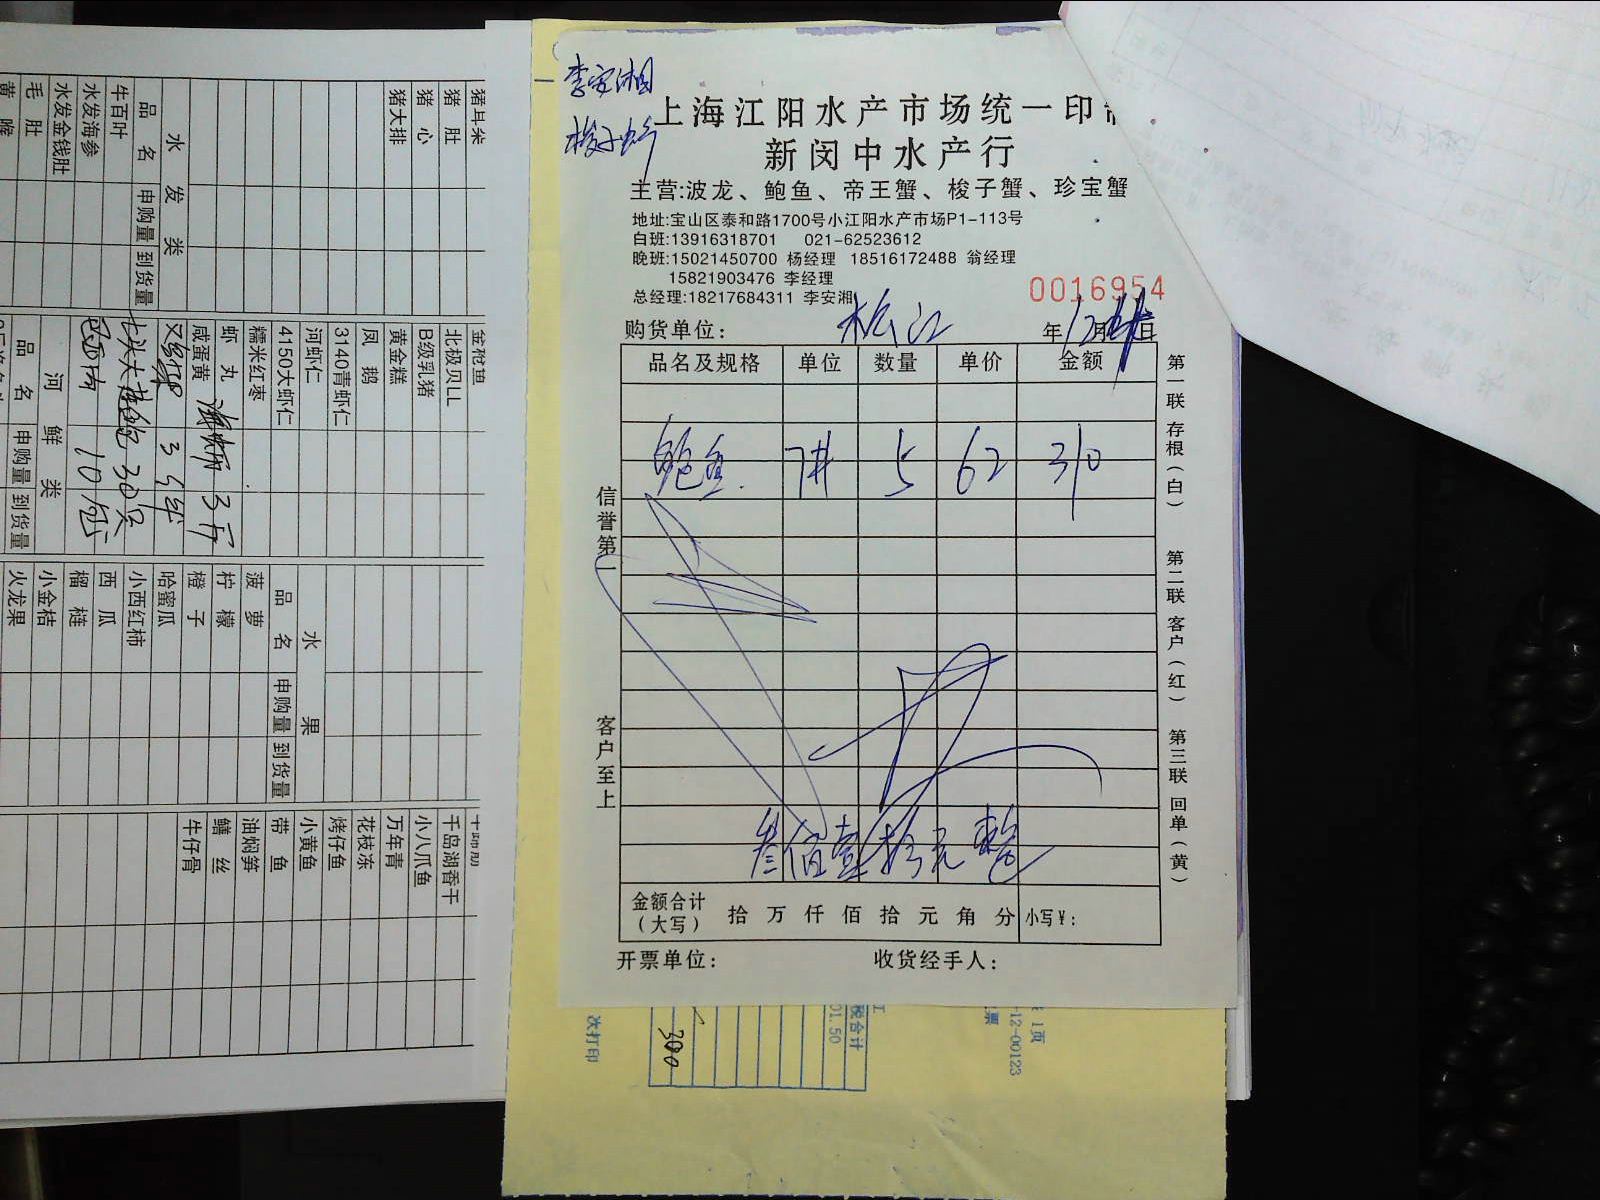 李安湘
梭子蟹
上海江阳水产市场统一印
新闵中水产行
主营:波龙、鲍鱼、帝王蟹、梭子蟹、珍宝蟹
地址:宝山区泰和路1700号小江阳水产市场P1-113号
白班:13916318701 021-62523612
晚班:15021450700 杨经理 18516172488 翁经理
15821903476 李经理
总经理:18217684311 李安湘
0016954
购货单位: 松江 年12月 日
品名及规格 单位 数量 单价 金额
鲍鱼 7# 5 62 310
叁佰壹拾元整
金额合计(大写) 拾 万 仟 佰 拾 元 角 分 小写¥:
开票单位: 收货经手人:
信誉第一
客户至上
第一联 存根(白)
第二联 客户(红)
第三联 回单(黄)
猪耳朵
猪肚
猪心
猪大排
水发类
品名 申购量 到货量
牛百叶
水发海参
水发金钱肚
毛肚
黄喉
金枪鱼
北极贝LL
B级乳猪
黄金糕
凤鹅
3140青虾仁
河虾仁
4150大虾仁
糯米红枣
虾丸
咸蛋黄
3斤
30只
10包
河鲜类
品名 申购量 到货量
水果
品名 申购量 到货量
菠萝
柠檬
橙子
哈蜜瓜
小西红柿
西瓜
榴梿
小金桔
火龙果
千岛湖香干
小八爪鱼
万年青
花枝冻
烤仔鱼
小黄鱼
带鱼
油焖笋
鳝丝
牛仔骨
次打印
300
01.50
税合计
-12-00123
1页